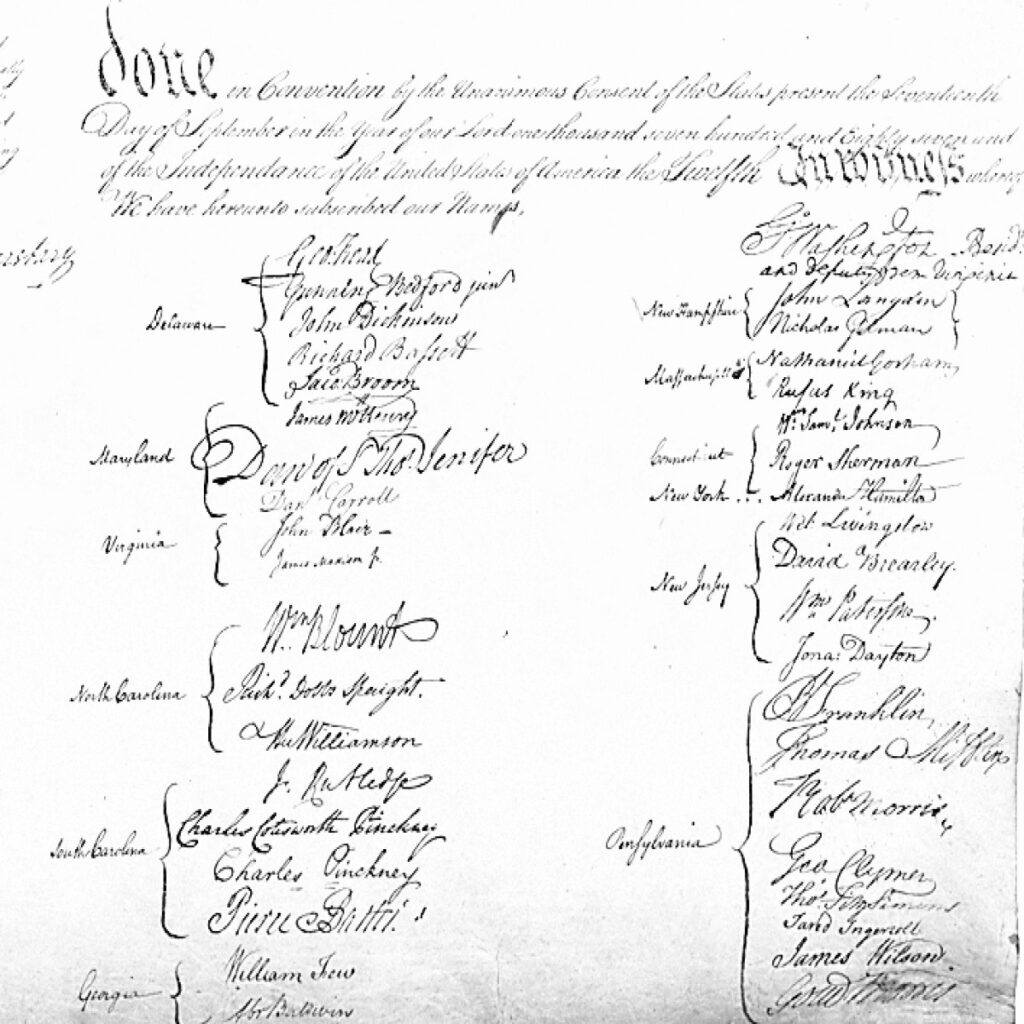 done in Convention by the Unanimous Consent of the States present the Seventeenth
Day of September in the Year of our Lord one thousand seven hundred and Eighty seven and
of the Independance of the United States of America the Twelfth In witness whereof
We have hereunto subscribed our Names,
Delaware
Geo: Read
Gunning Bedford jun
John Dickinson
Richard Bassett
Jaco: Broom
Maryland
James McHenry
Dan of St Thos. Jenifer
Danl Carroll
Virginia
John Blair –
James Madison Jr.
North Carolina
Wm Blount
Richd. Dobbs Spaight.
Hu Williamson
South Carolina
J. Rutledge
Charles Cotesworth Pinckney
Charles Pinckney
Pierce Butler.
Georgia
William Few
Abr Baldwin
Go. Washington Presidt.
and deputy from Virginia
New Hampshire
John Langdon
Nicholas Gilman
Massachusetts
Nathaniel Gorham
Rufus King
Connecticut
Wm. Saml. Johnson
Roger Sherman
New York . . . Alexander Hamilton
New Jersey
Wil: Livingston
David Brearley.
Wm. Paterson.
Jona: Dayton
Pensylvania
B Franklin
Thomas Mifflin
Robt Morris.
Geo Clymer
Thos. FitzSimons
Jared Ingersoll
James Wilson.
Gouv Morris